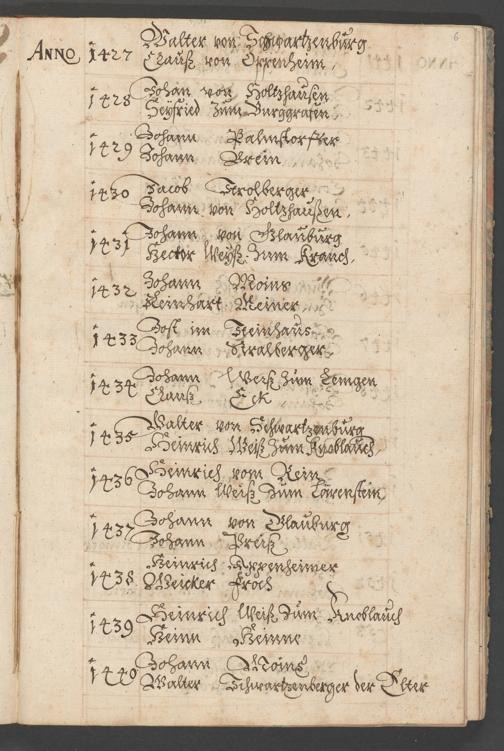 6
ANNO 1427 Walter von Schwartzenburg
Clauß von Oppenheim,
1428 Johan von Holtzhausen
Seyfried zum Burggrafen
1429 Johann Palmstorffer
Johann Brein
1430 Jacob Strolberger
Johann von Holtzhaußen,
1431 Johann von Glauburg
Hector Weyß zum Kranch,
1432 Johann Moins
Reinhart Weiner
1433 Jost im Steinhauß
Johann Stralberger
1434 Johann Weiß zum Lemgen
Clauß Eck
1435 Walter von Schwartzenburg
Heinrich Weiß zum Knoblauch
1436 Heinrich vom Rein
Johann Weiß zum Lewenstein
1437 Johann von Glauburg
Johann Preiß
1438 Heinrich Appenheimer
Weicker Frosch
1439 Heinrich Weiß zum Knoblauch
1440 Johann Moins
Walter Schwartzenberger der Elter